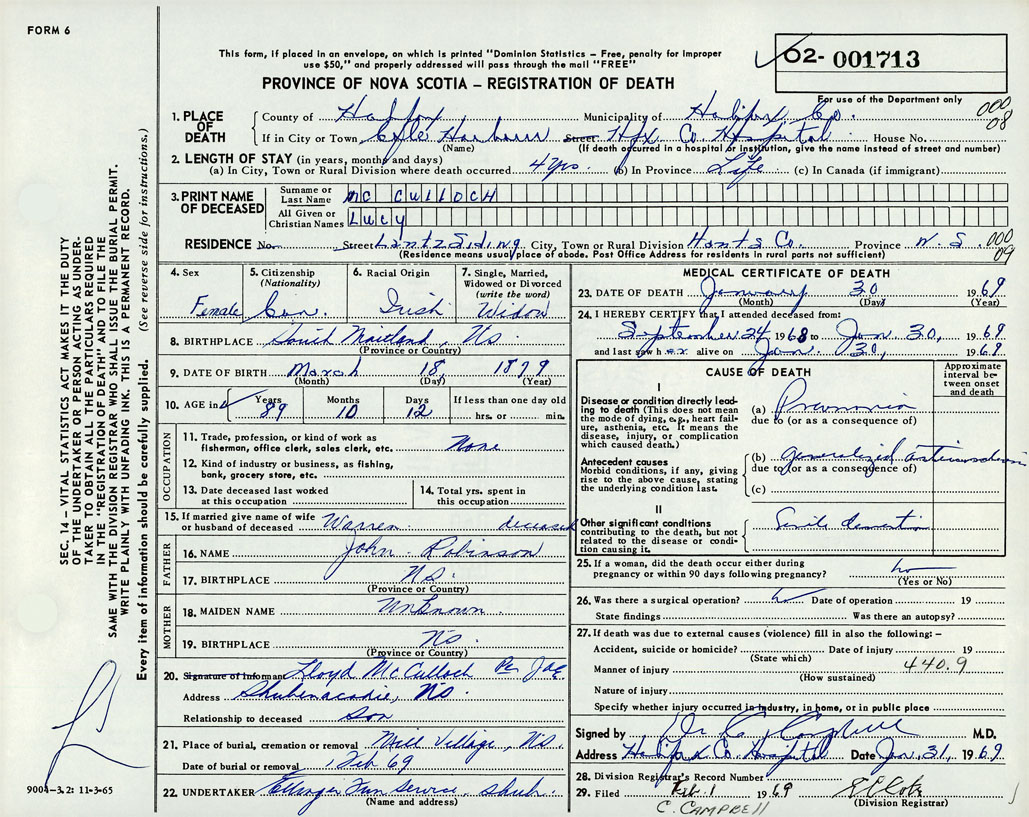 FORM 6
This form, if placed in an envelope, on which is printed "Dominion Statistics – Free, penalty for improper
use $50," and properly addressed will pass through the mail "FREE"
02- 001713
PROVINCE OF NOVA SCOTIA – REGISTRATION OF DEATH
For use of the Department only
000
08
1. PLACE OF DEATH
County of Halifax Municipality of Halifax Co.
If in City or Town Cole Harbour Street Hfx Co. Hospital House No.
(Name) (If death occurred in a hospital or institution, give the name instead of street and number)
2. LENGTH OF STAY (in years, months and days)
(a) In City, Town or Rural Division where death occurred 4 yrs (b) In Province Life (c) In Canada (if immigrant)
3. PRINT NAME OF DECEASED
Surname or Last Name MC CULLOCH
All Given or Christian Names LUCY
RESIDENCE No. Street Lantz Siding City, Town or Rural Division Hants Co. Province N.S. 000
09
(Residence means usual place of abode. Post Office Address for residents in rural parts not sufficient)
4. Sex Female
5. Citizenship (Nationality) Can.
6. Racial Origin Irish
7. Single, Married, Widowed or Divorced (write the word) Widow
8. BIRTHPLACE South Maitland, NS.
(Province or Country)
9. DATE OF BIRTH March 18, 1879
(Month) (Day) (Year)
10. AGE in Years 89 Months 10 Days 12 If less than one day old hrs. or min.
OCCUPATION
11. Trade, profession, or kind of work as
fisherman, office clerk, sales clerk, etc. None
12. Kind of industry or business, as fishing,
bank, grocery store, etc.
13. Date deceased last worked
at this occupation
14. Total yrs. spent in
this occupation
15. If married give name of wife
or husband of deceased Warren deceased
FATHER
16. NAME John Robinson
17. BIRTHPLACE NS.
(Province or Country)
MOTHER
18. MAIDEN NAME Unknown
19. BIRTHPLACE NS.
(Province or Country)
20. Signature of Informant Lloyd McCulloch Per
Address Shubenacadie, NS.
Relationship to deceased Son
21. Place of burial, cremation or removal Mill Village, NS.
Date of burial or removal 1 Feb 69
22. UNDERTAKER Ettinger Fun Service, Shub.
(Name and address)
MEDICAL CERTIFICATE OF DEATH
23. DATE OF DEATH January 30 1969
(Month) (Day) (Year)
24. I HEREBY CERTIFY that I attended deceased from:
September 24 1968 to Jan. 30, 1969
and last saw her alive on Jan. 30, 1969
CAUSE OF DEATH
Approximate interval between onset and death
I
Disease or condition directly leading to death (This does not mean the mode of dying, e.g., heart failure, asthenia, etc. It means the disease, injury, or complication which caused death.)
(a) Pneumonia
due to (or as a consequence of)
Antecedent causes
Morbid conditions, if any, giving rise to the above cause, stating the underlying condition last.
(b) generalized arteriosclerosis
due to (or as a consequence of)
(c)
II
Other significant conditions contributing to the death, but not related to the disease or condition causing it.
Senile dementia
25. If a woman, did the death occur either during
pregnancy or within 90 days following pregnancy? no
(Yes or No)
26. Was there a surgical operation? no Date of operation 19
State findings Was there an autopsy?
27. If death was due to external causes (violence) fill in also the following: –
Accident, suicide or homicide? Date of injury 19
(State which)
Manner of injury 440.9
(How sustained)
Nature of injury
Specify whether injury occurred in industry, in home, or in public place
Signed by Dr C Campbell M.D.
Address Halifax Co. Hospital Date Jan. 31, 1969
28. Division Registrar's Record Number
29. Filed Feb. 1 1969
(Division Registrar)
C. CAMPBELL
SEC. 14 – VITAL STATISTICS ACT MAKES IT THE DUTY
OF THE UNDERTAKER OR PERSON ACTING AS UNDERTAKER
TO OBTAIN ALL THE PARTICULARS REQUIRED
IN THE "REGISTRATION OF DEATH" AND TO FILE THE
SAME WITH THE DIVISION REGISTRAR WHO SHALL ISSUE THE BURIAL PERMIT.
WRITE PLAINLY WITH UNFADING INK. THIS IS A PERMANENT RECORD.
Every item of information should be carefully supplied. (See reverse side for instructions.)
9004-3.2: 11-3-65